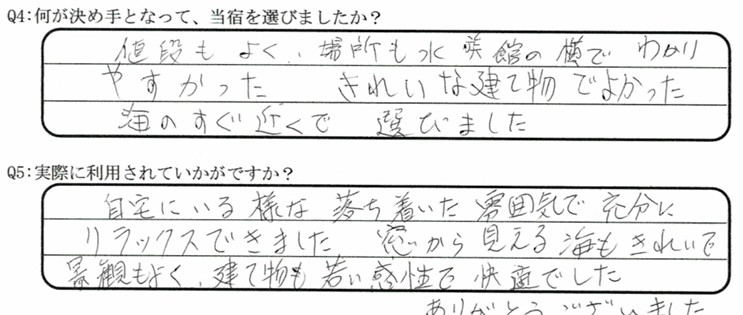 Q4:何が決め手となって、当宿を選びましたか？
値段もよく、場所も水族館の横でわかり
やすかった　きれいな建て物でよかった
海のすぐ近くで　選びました
Q5:実際に利用されていかがですか？
自宅にいる様な落ち着いた雰囲気で充分に
リラックスできました　窓から見える海もきれいで
景観もよく、建て物も若い感性で快適でした
ありがとうございました